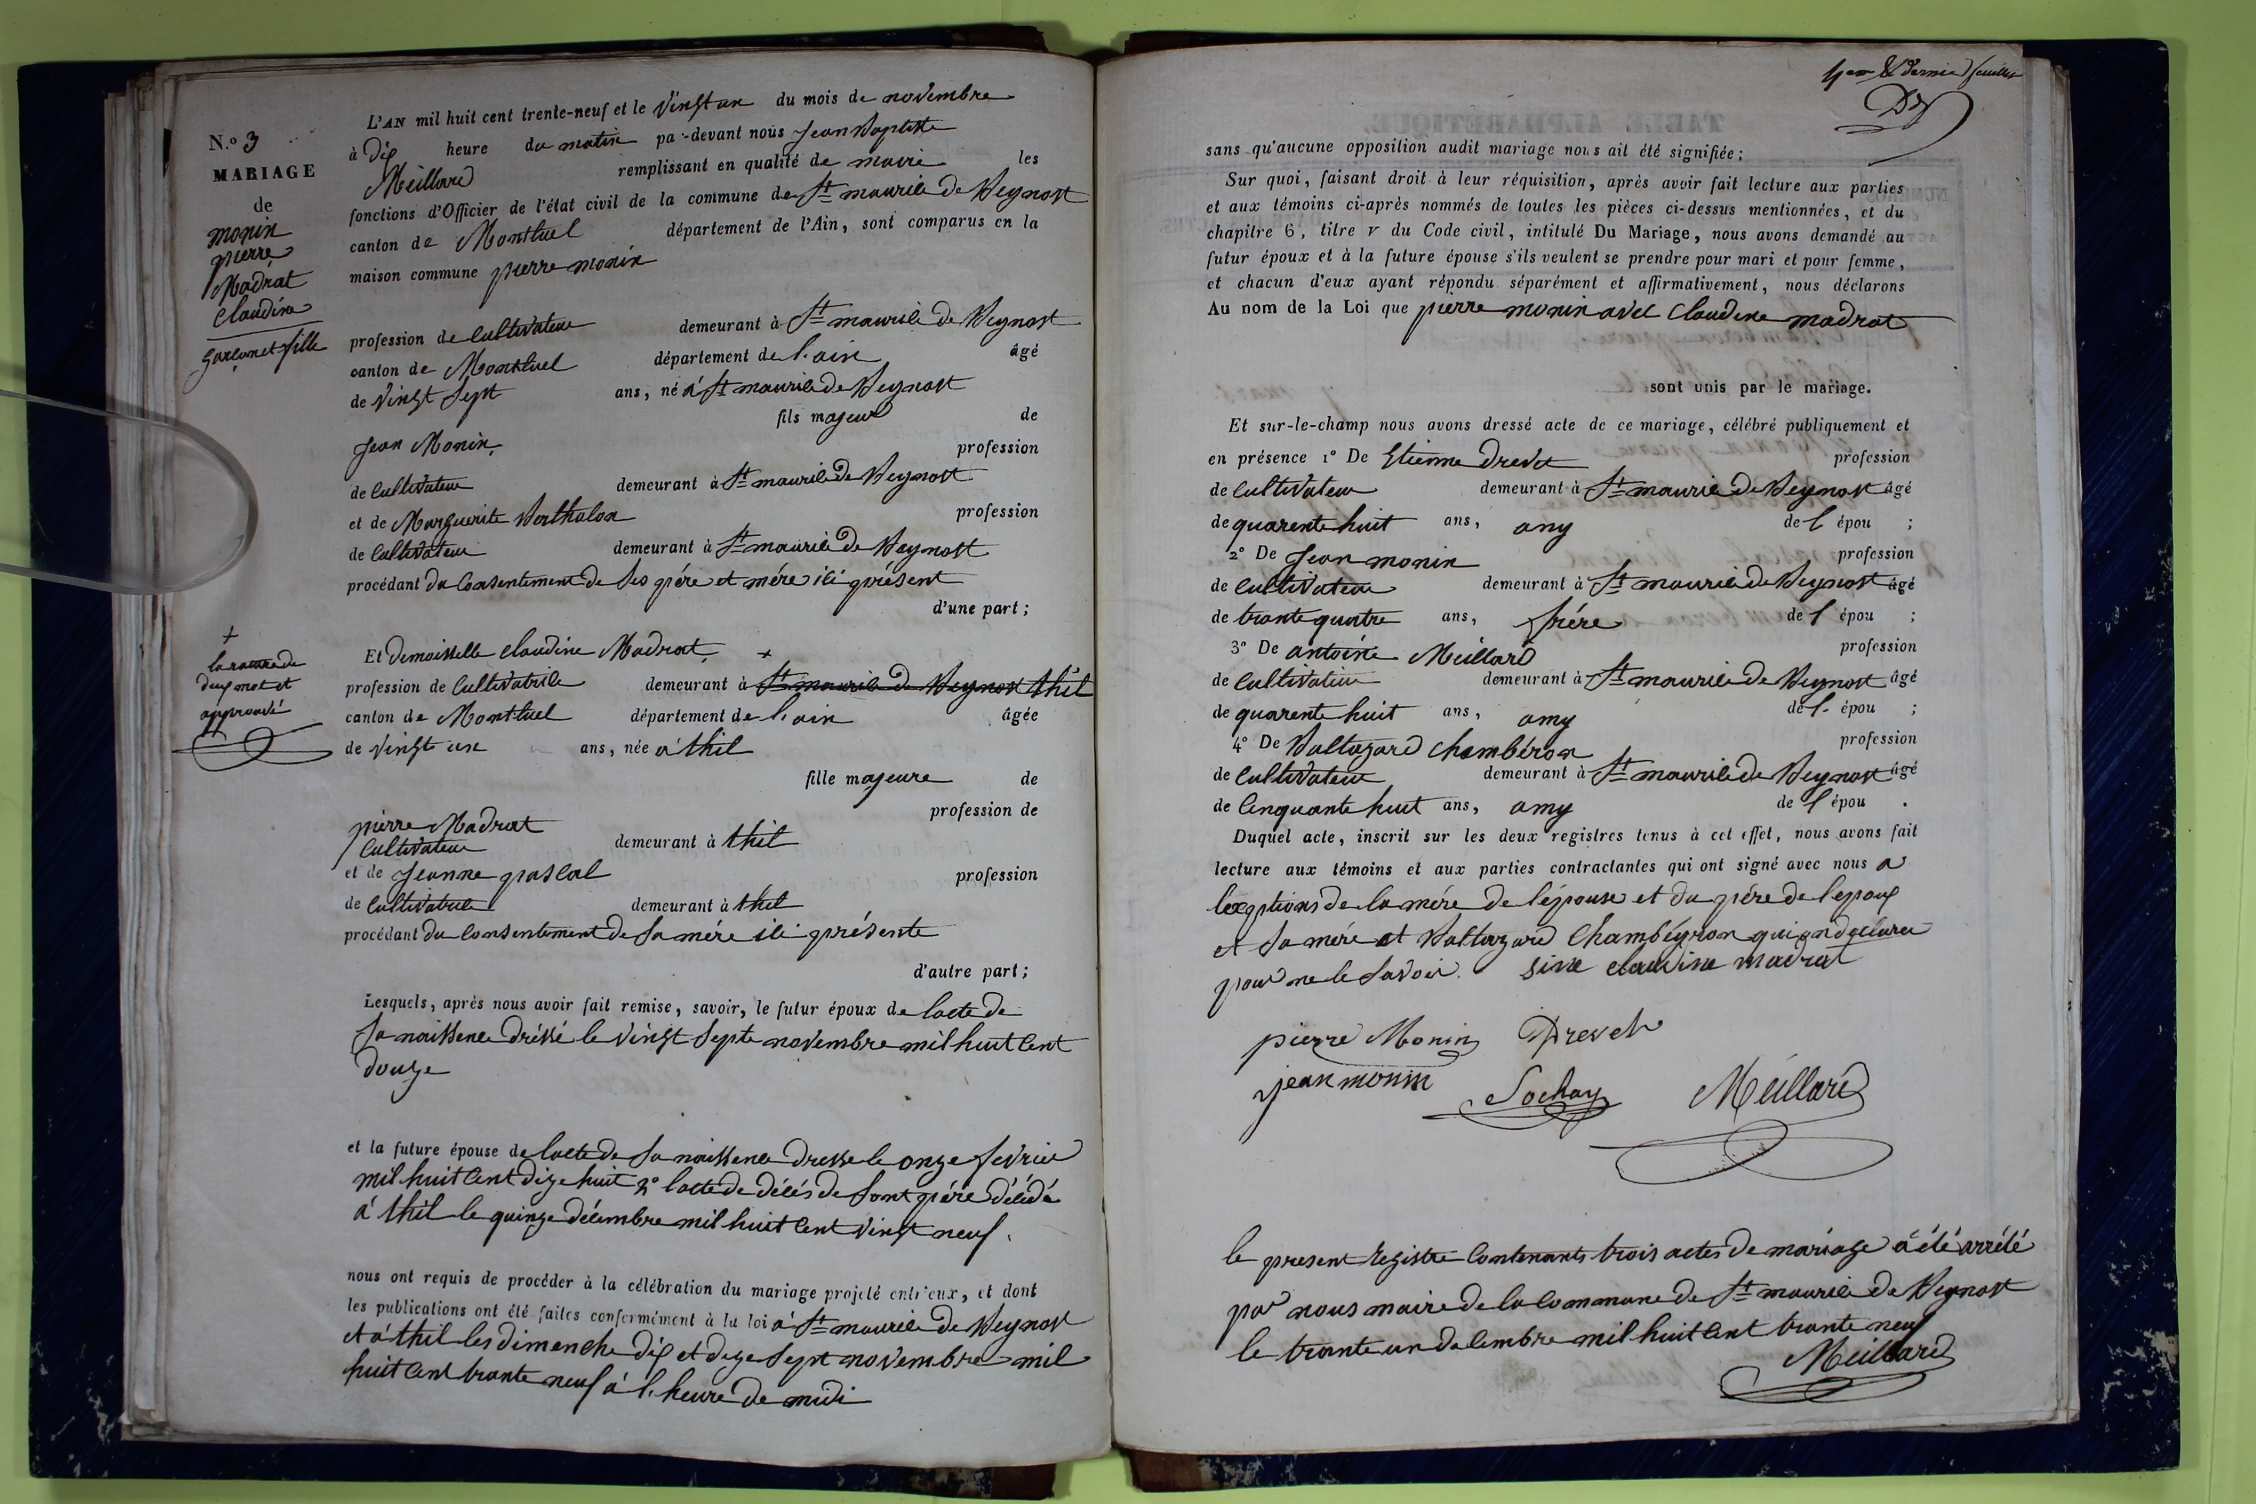 N.o 3
MARIAGE
de
monin
pierre
Madrat
Claudine
garçon et fille
L'AN mil huit cent trente-neuf et le vingt un du mois de novembre
à dix heure du matin par-devant nous Jean Baptiste
Meillard remplissant en qualité de maire les
fonctions d'Officier de l'état civil de la commune de St maurice de Beynost
canton de Montluel département de l'Ain, sont comparus en la
maison commune pierre monin
profession de Cultivateur demeurant à St maurice de Beynost
canton de Montluel département de l'ain âgé
de vingt sept ans, né à St maurice de Beynost
fils majeur de
Jean Monin profession
de Cultivateur demeurant à St maurice de Beynost
et de Marguerite Berthalon profession
de Cultivateur demeurant à St maurice de Beynost
procédant du Consentement de Ses pére et mére ici présent
d'une part ;
+
la rature de
deux mot et
approuvé
Et demoiselle Claudine Madrat +
profession de Cultivatrice demeurant à St maurice de Beynost thil
canton de Montluel département de l'ain âgée
de vingt un ans, née à thil
fille majeure de
pierre Madrat profession de
Cultivateur demeurant à thil
et de Jeanne pascal profession
de Cultivatrice demeurant à thil
procédant du Consentement de Sa mére ici présente
d'autre part ;
Lesquels, après nous avoir fait remise, savoir, le futur époux de lacte de
Sa naissence dréssé le vingt Septe novembre mil huit Cent
douze
et la future épouse de lacte de Sa naissence dresse le onze fevrier
mil huit Cent dize huit 2o lacte de décés de Sont pére décédé
à thil le quinze décembre mil huit Cent vingt neuf.
nous ont requis de procéder à la célébration du mariage projeté entr'eux, et dont
les publications ont été faites conformément à la loi à St maurice de Beynost
et à thil les dimenche dix et dize Sept novembre mil
huit Cent trante neuf à l'heure de midi
4em & dernier feuillet
sans qu'aucune opposition audit mariage nous ait été signifiée ;
Sur quoi, faisant droit à leur réquisition, après avoir fait lecture aux parties
et aux témoins ci-après nommés de toutes les pièces ci-dessus mentionnées, et du
chapitre 6, titre v du Code civil, intitulé Du Mariage, nous avons demandé au
futur époux et à la future épouse s'ils veulent se prendre pour mari et pour femme,
et chacun d'eux ayant répondu séparément et affirmativement, nous déclarons
Au nom de la Loi que pierre monin avec Claudine madrat
sont unis par le mariage.
Et sur-le-champ nous avons dressé acte de ce mariage, célébré publiquement et
en présence 1o De Etienne Drevet profession
de Cultivateur demeurant à St maurice de Beynost âgé
de quarente huit ans, amy de l'épou ;
2o De Jean monin profession
de Cultivateur demeurant à St maurice de Beynost âgé
de trante quatre ans, frére de l'épou ;
3o De antoine Meillard profession
de Cultivateur demeurant à St maurice de Beynost âgé
de quarente huit ans, amy de l'épou ;
4o De Baltazard Chambéron profession
de Cultivateur demeurant à St maurice de Beynost âgé
de Cinquante huit ans, amy de l'épou .
Duquel acte, inscrit sur les deux registres tenus à cet effet, nous avons fait
lecture aux témoins et aux parties contractantes qui ont signé avec nous a
lexceptions de la mére de l'épouse et du pére de l'epoux
et Sa mére et Baltazard Chambéyron qui on déclaré
pour ne le Savoir. Sine claudine madrat
pierre Monin Drevet
jean monin
Sochay Meillard
le present Registre Contenants trois actes de mariage à été arrété
par nous maire de la Commune de St maurice de Beynost
le trante un décembre mil huit Cent trante neuf
Meillard